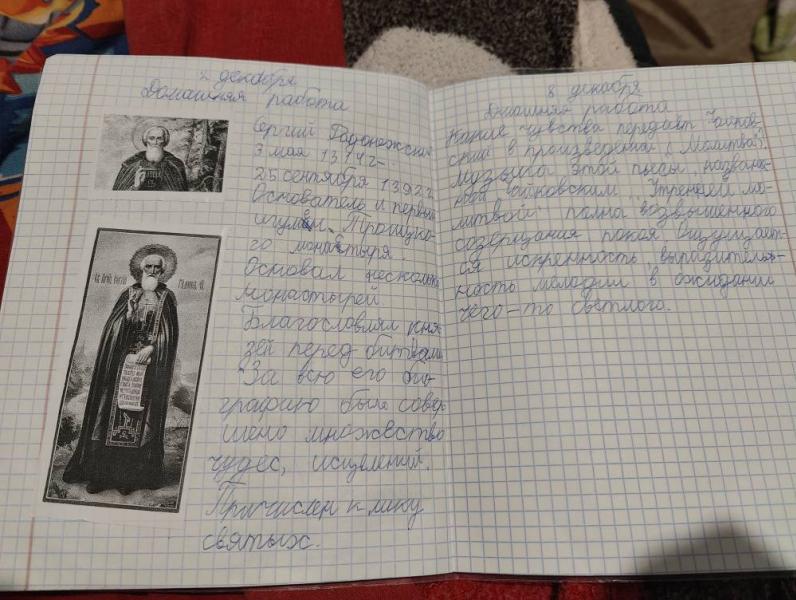 2 декабря
Домашняя работа
Сергий Радонежский
3 мая 1314 г -
25 сентября 1392 г
Основатель и первый
игумен Троицко-
го монастыря.
Основал несколько
монастырей
Благословлял кня
зей перед битвами
За всю его био
графию было совер
шено множество
чудес, исцелений.
Причислен к лику
святых.
8 декабря
Домашняя работа
Какие чувства передаёт Чайков-
ский в произведении („Молитва")
Музыка этой пьесы, назван-
ной Чайковским „Утренней мо-
литвой" полна возвышенного
созерцания покоя. Ощущает-
ся искренность, выразитель-
ность мелодии в ожидании
чего-то светлого.